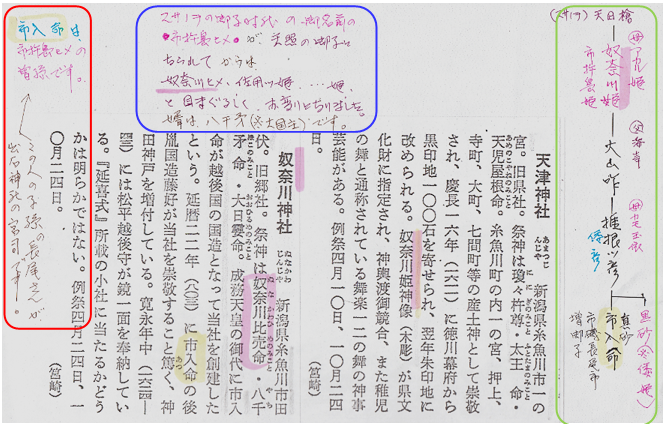 市入命は、
市杵島ヒメの
曾孫です。
この人の子孫の長尾さんが
出石神社の宮司です。
スサノヲの御子時代の御名前の
・市杵島ヒメ・が、天照の御子に
なられてからは
奴奈川ヒメ、佐用ツ姫…姫、
と目まぐるしく、お変りになりました。
婿は八千矛(大国主)です。
(スサノヲ)天日槍
奴奈川姫
市杵島姫
大山咋
市入命
天津神社 あまつじんじゃ 新潟県糸魚川市一の
宮。旧県社。祭神は瓊々杵尊・太玉命・
天児屋根命。糸魚川町の内一の宮、押上、
寺町、大町、七間町等の産土神として崇敬
され、慶長一六年(一六一一)に徳川幕府から
黒印地一〇〇石を寄せられ、翌年朱印地に
改められる。奴奈川姫神像(木彫)が県文
化財に指定され、神輿渡御競合、また稚児
の舞と通称されている舞楽一二の舞の神事
芸能がある。例祭四月一〇日、一〇月二四
日。(宮崎)
奴奈川神社 ぬなかわじんじゃ 新潟県糸魚川市田
伏。旧郷社。祭神は奴奈川比売命・八千
矛命・大日孁命。成務天皇の御代に市入
命が越後国の国造となって当社を創建した
という。延暦二二年(八〇三)に市入命の後
胤国造藤好が当社を崇敬すること篤く、神
田神戸を増付している。寛永年中(一六二四—
四四)には松平越後守が鏡一面を奉納してい
る。『延喜式』所載の小社に当たるかどう
かは明らかではない。例祭四月二四日、一
〇月二四日。(宮崎)